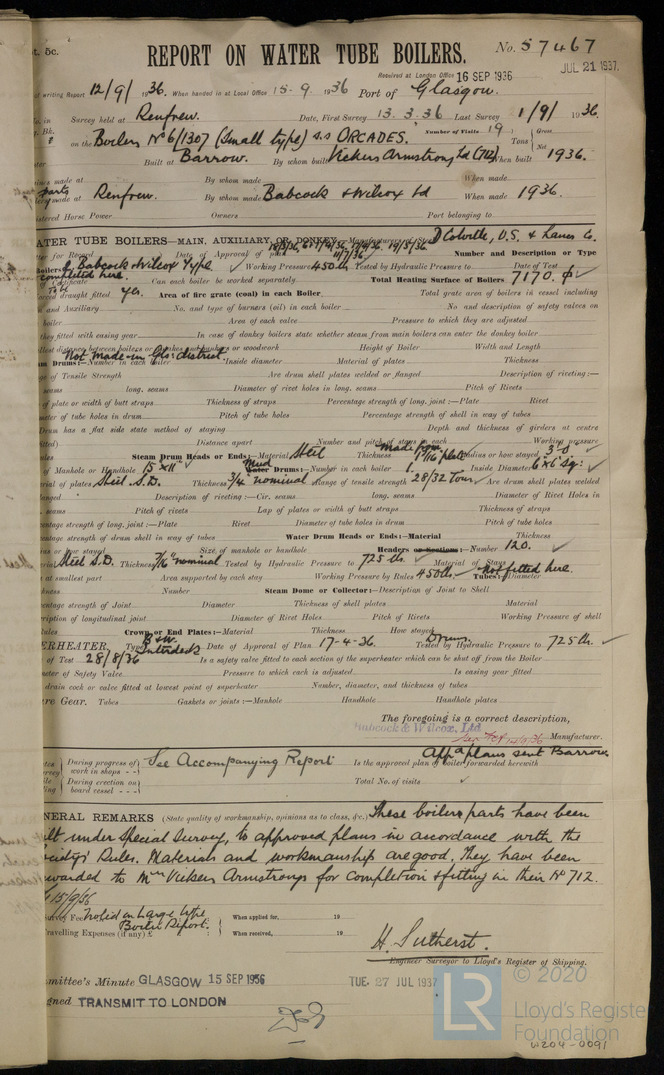 t. 5c.
REPORT ON WATER TUBE BOILERS.
No. 57467
Received at London Office 16 SEP 1936
JUL 21 1937
of writing Report 12/9/1936. When handed in at Local Office 15-9-1936 Port of Glasgow.
Survey held at Renfrew. Date, First Survey 13.3.36 Last Survey 1/9/1936.
Number of Visits 19
on the Boilers No 6/1307 (Small type) S.S ORCADES. Tons Gross Net
Built at Barrow. By whom built Vickers Armstrong Ld (712) When built 1936.
made at By whom made When made
parts made at Renfrew. By whom made Babcock & Wilcox Ld When made 1936.
Horse Power Owners Port belonging to
WATER TUBE BOILERS—MAIN, AUXILIARY, OR DONKEY.—Manufacturers of Steel D Colville, U.S. & Lanes Co.
Date of Approval of plan 11/7/36 Number and Description or Type
Babcock & Wilcox Type Working Pressure 450 lb Tested by Hydraulic Pressure to Date of Test
completed here.
Certificate Can each boiler be worked separately Total Heating Surface of Boilers 7170.
draught fitted yes. Area of fire grate (coal) in each Boiler Total grate area of boilers in vessel including
and Auxiliary No. and type of burners (oil) in each boiler No. and description of safety valves on
boiler Area of each valve Pressure to which they are adjusted
they fitted with easing gear In case of donkey boilers state whether steam from main boilers can enter the donkey boiler
distance between boilers or uptakes and bunkers or woodwork Height of Boiler Width and Length
Not made in Gls district
Drums:—Number in each boiler Inside diameter Material of plates Thickness
of Tensile Strength Are drum shell plates welded or flanged Description of riveting:—
seams long. seams Diameter of rivet holes in long. seams Pitch of Rivets
of plate or width of butt straps Thickness of straps Percentage strength of long. joint:—Plate Rivet
of tube holes in drum Pitch of tube holes Percentage strength of shell in way of tubes
Drum has a flat side state method of staying Depth and thickness of girders at centre
Distance apart Number and pitch of stays in each Working pressure
Steam Drum Heads or Ends:—Material Steel Thickness made from 1 1/16 plate Radius or how stayed 3'-0
of Manhole or Handhole 15" x 11" Mud Drums:—Number in each boiler 1. Inside Diameter 6" x 6" Sq:
of plates Steel S.D. Thickness 3/4 nominal Range of tensile strength 28/32 Tons Are drum shell plates welded
Description of riveting:—Cir. seams long. seams Diameter of Rivet Holes in
seams Pitch of rivets Lap of plates or width of butt straps Thickness of straps
strength of long. joint:—Plate Rivet Diameter of tube holes in drum Pitch of tube holes
strength of drum shell in way of tubes Water Drum Heads or Ends:—Material Thickness
or how stayed Size of manhole or handhole Headers or Sections:—Number 120.
Steel S.D. Thickness 7/16" nominal Tested by Hydraulic Pressure to 725 lb. Material of Stays
at smallest part Area supported by each stay Working Pressure by Rules 450 lb Tubes: Not fitted here. Diameter
Number Steam Dome or Collector:—Description of Joint to Shell
strength of Joint Diameter Thickness of shell plates Material
of longitudinal joint Diameter of Rivet Holes Pitch of Rivets Working Pressure of shell
Rules Crown or End Plates:—Material Thickness How stayed
SUPERHEATER. Type B & W. Interdeck Date of Approval of Plan 17-4-36. Drums. Tested by Hydraulic Pressure to 725 lb.
of Test 28/8/36 Is a safety valve fitted to each section of the superheater which can be shut off from the Boiler
of Safety Valve Pressure to which each is adjusted Is easing gear fitted
drain cock or valve fitted at lowest point of superheater Number, diameter, and thickness of tubes
Gear. Tubes Gaskets or joints:—Manhole Handhole Handhole plates
The foregoing is a correct description,
Babcock & Wilcox, Ltd
Manufacturer.
During progress of work in shops - - See Accompanying Report Is the approval plan of boiler forwarded herewith App'd plans sent Barrow.
During erection on board vessel - - - Total No. of visits
GENERAL REMARKS (State quality of workmanship, opinions as to class, &c.) These boiler parts have been
built under Special Survey, to approved plans in accordance with the
Society's Rules. Materials and workmanship are good. They have been
forwarded to Mrs Vickers Armstrongs for completion & fitting in their No 712.
15/9/36
Survey Fee Included in Large type Boiler Report. When applied for, 19
Travelling Expenses (if any) £ When received, 19
H. Sutherst.
Engineer Surveyor to Lloyd's Register of Shipping.
Committee's Minute GLASGOW 15 SEP 1936 TUE. 27 JUL 1937
TRANSMIT TO LONDON
LR © 2020
Lloyd's Register
Foundation
W204-0091